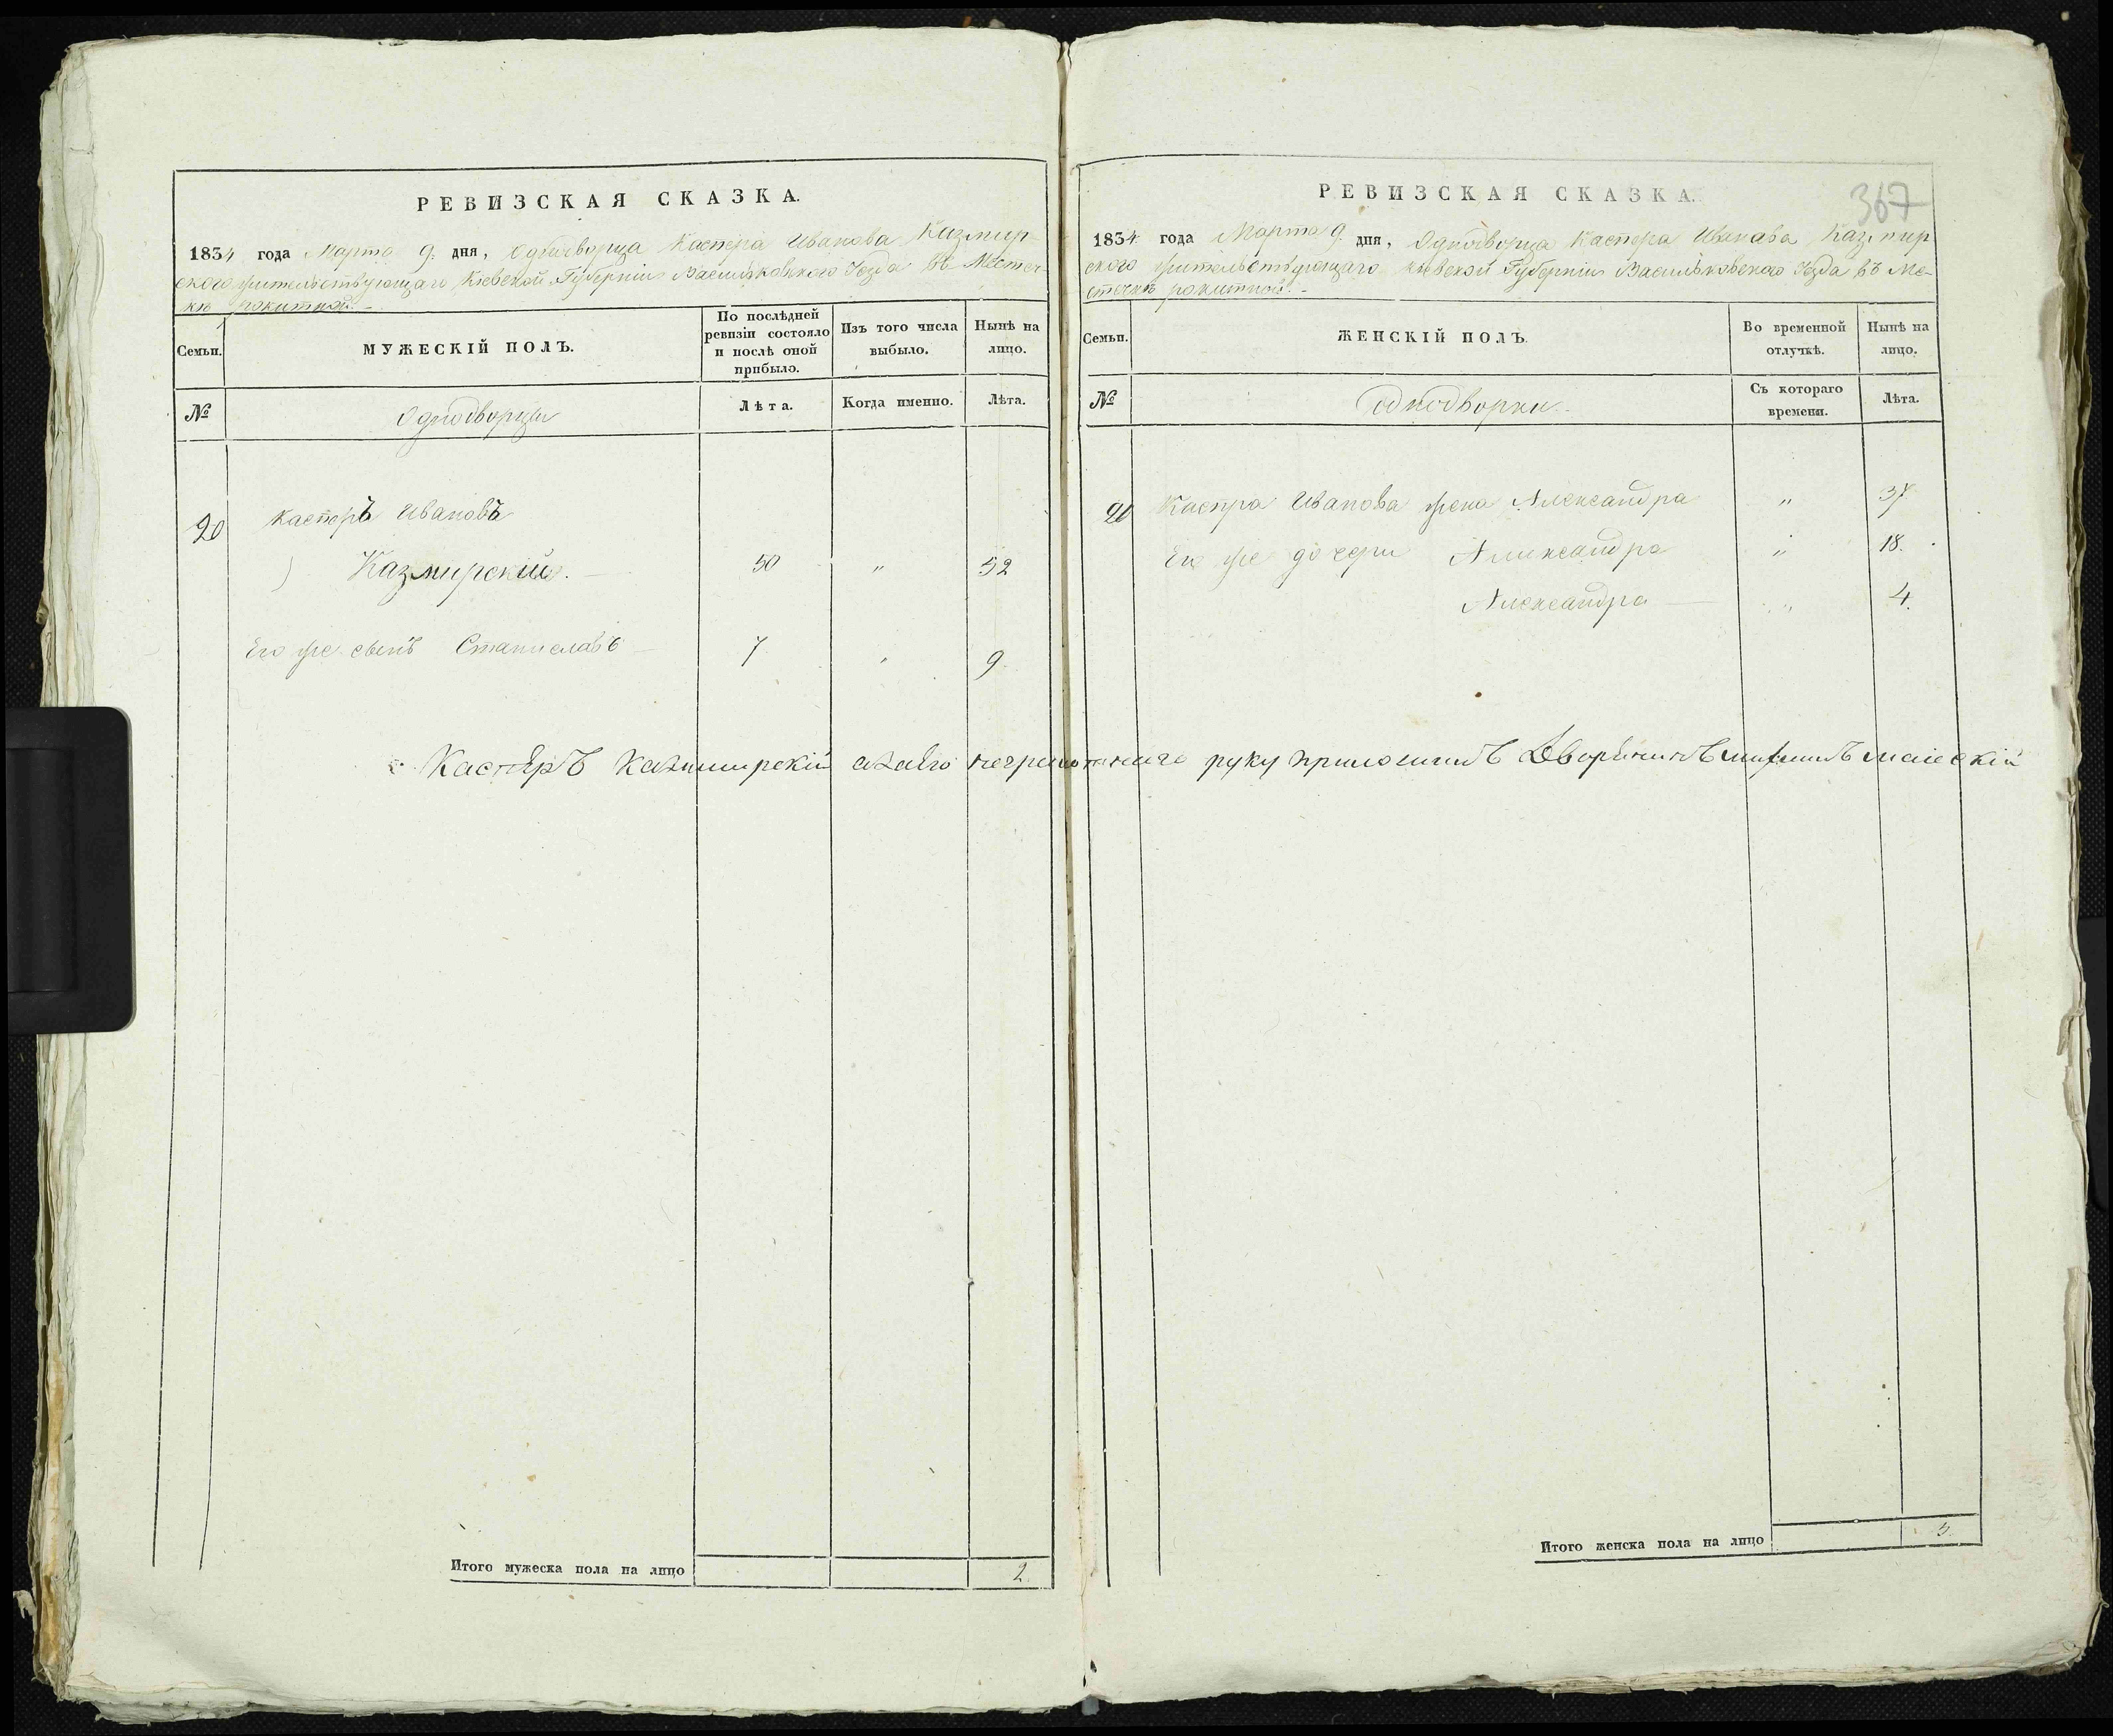 РЕВИЗСКАЯ СКАЗКА.
1834 года Марта 9. дня, Однодворца Каспера Иванова Казмир-
ского жительствующаго Кіевской Губерніи Васильковского Уезда въ Местеч-
ке рокитной.-
Семьи.
МУЖЕСКІЙ ПОЛЪ.
По послѣдней
ревизіи состояло
и послѣ оной
прибыло.
Изъ того числа
выбыло.
Нынѣ на
лицо.
№
Однодворцы
Лѣта.
Когда именно.
Лѣта.
20 Касперъ Ивановъ
Казмирскій. — 50 " 52
Его же сынъ Станиславъ — 7 " 9
Итого мужеска пола на лицо 2.
367
РЕВИЗСКАЯ СКАЗКА.
1834 года Марта 9. дня, Однодворца Каспера Иванова Казмир
ского жительствующаго кіевской Губерніи Васильковского Уезда въ Ме-
стечкѣ рокитной.-
Семьи.
ЖЕНСКІЙ ПОЛЪ.
Во временной
отлучкѣ.
Нынѣ на
лицо.
№
однодворки.
Съ котораго
времени.
Лѣта.
20 Каспра Иванова жена Александра " 37
Его же дочери Александра " 18.
Александра — " 4.
Касперъ Казимирскій азаего неграмотнаго руку приложилъ Дворянинъ
Итого женска пола на лицо 3.